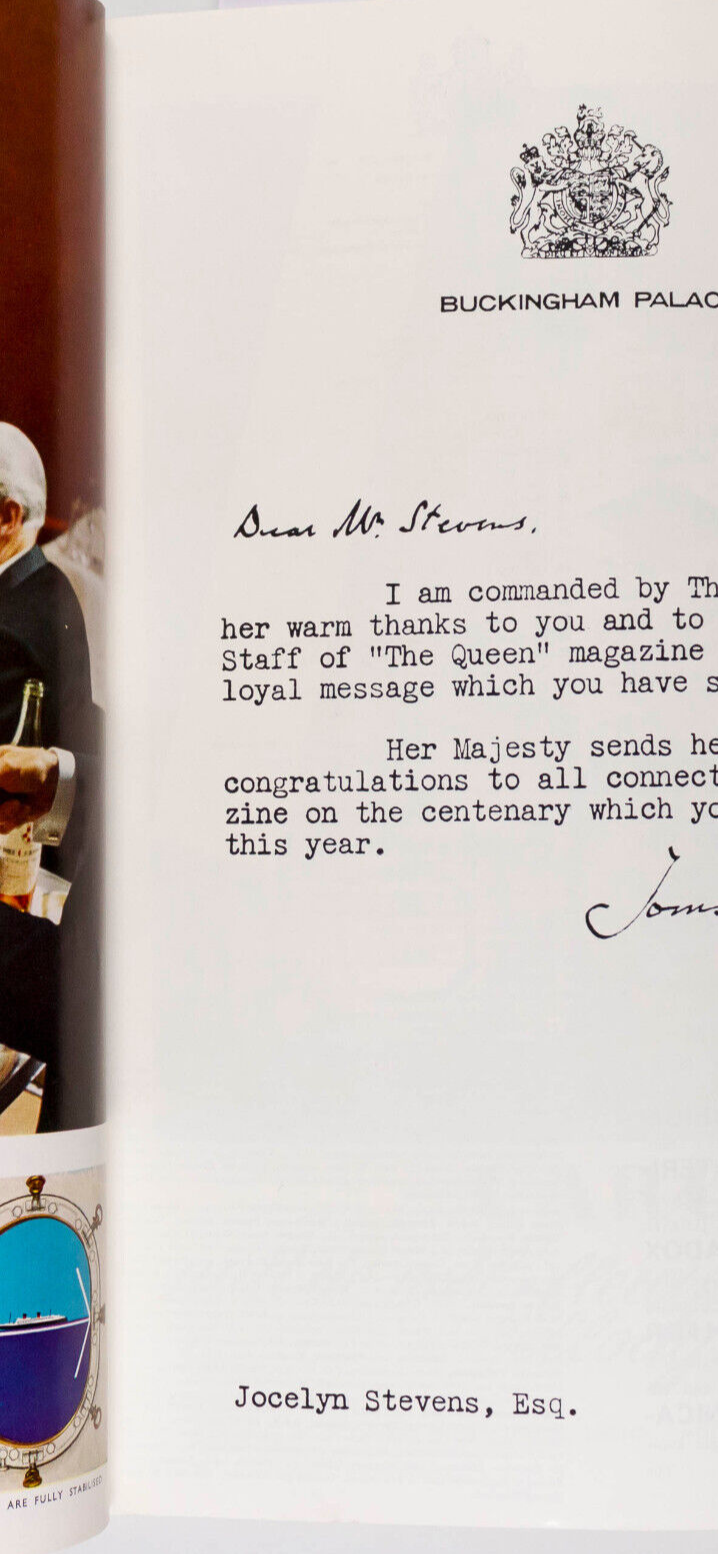 BUCKINGHAM PALAC
Dear Mr. Stevens,
I am commanded by Th
her warm thanks to you and to
Staff of "The Queen" magazine
loyal message which you have s
Her Majesty sends he
congratulations to all connect
zine on the centenary which yo
this year.
Jocelyn Stevens, Esq.
ARE FULLY STABILISED